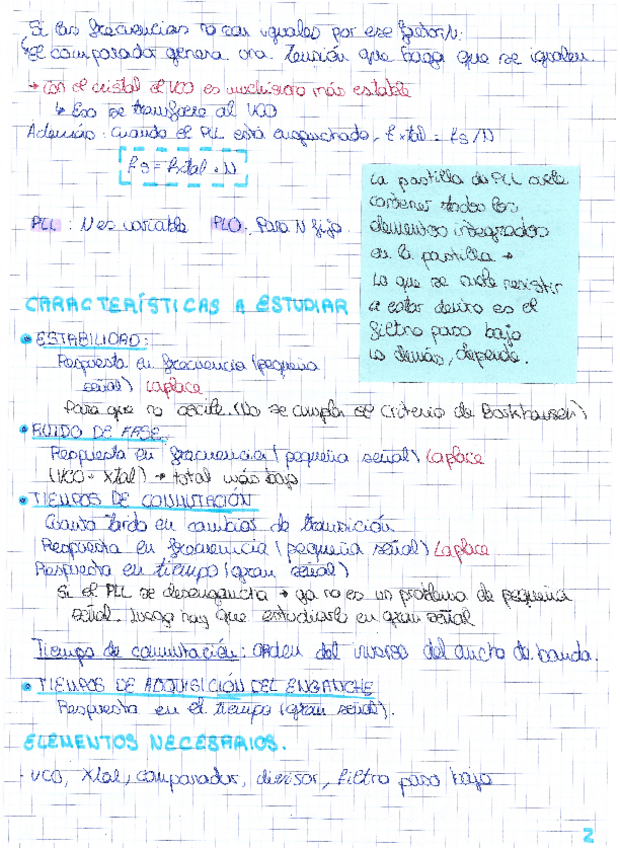 Si las frecuencias no son iguales por ese factor N.
el comparador genera una tensión que haga que se igualen.
→ Con el cristal el VCO es muchísimo más estable
↳ Eso se transfiere al VCO
Además: cuando el PLL está enganchado, fxtal = fs/N
fs = fxtal · N
PLL : N es variable PLO: Para N fijo.
La pastilla de PLL suele
contener todos los
elementos integrados
en la pastilla →
Lo que se suele resistir
a estar dentro es el
filtro paso bajo
Lo demás, depende.
CARACTERÍSTICAS A ESTUDIAR
• ESTABILIDAD:
Respuesta en frecuencia (pequeña
señal) Laplace
Para que no oscile. (No se cumpla el criterio de Barkhausen)
• RUIDO DE FASE.
Respuesta en frecuencia (pequeña señal) Laplace
(VCO - Xtal) → total más bajo
• TIEMPOS DE CONMUTACIÓN
Cuanto tarda en cambiar de transición.
Respuesta en frecuencia (pequeña señal) Laplace
Respuesta en tiempo (gran señal)
Si el PLL se desengancha → ya no es un problema de pequeña
señal. Luego hay que estudiarlo en gran señal
Tiempo de conmutación: orden del inverso del ancho de banda.
• TIEMPOS DE ADQUISICIÓN DEL ENGANCHE
Respuesta en el tiempo (gran señal).
ELEMENTOS NECESARIOS.
- VCO, Xtal, comparador, divisor, filtro paso bajo
2